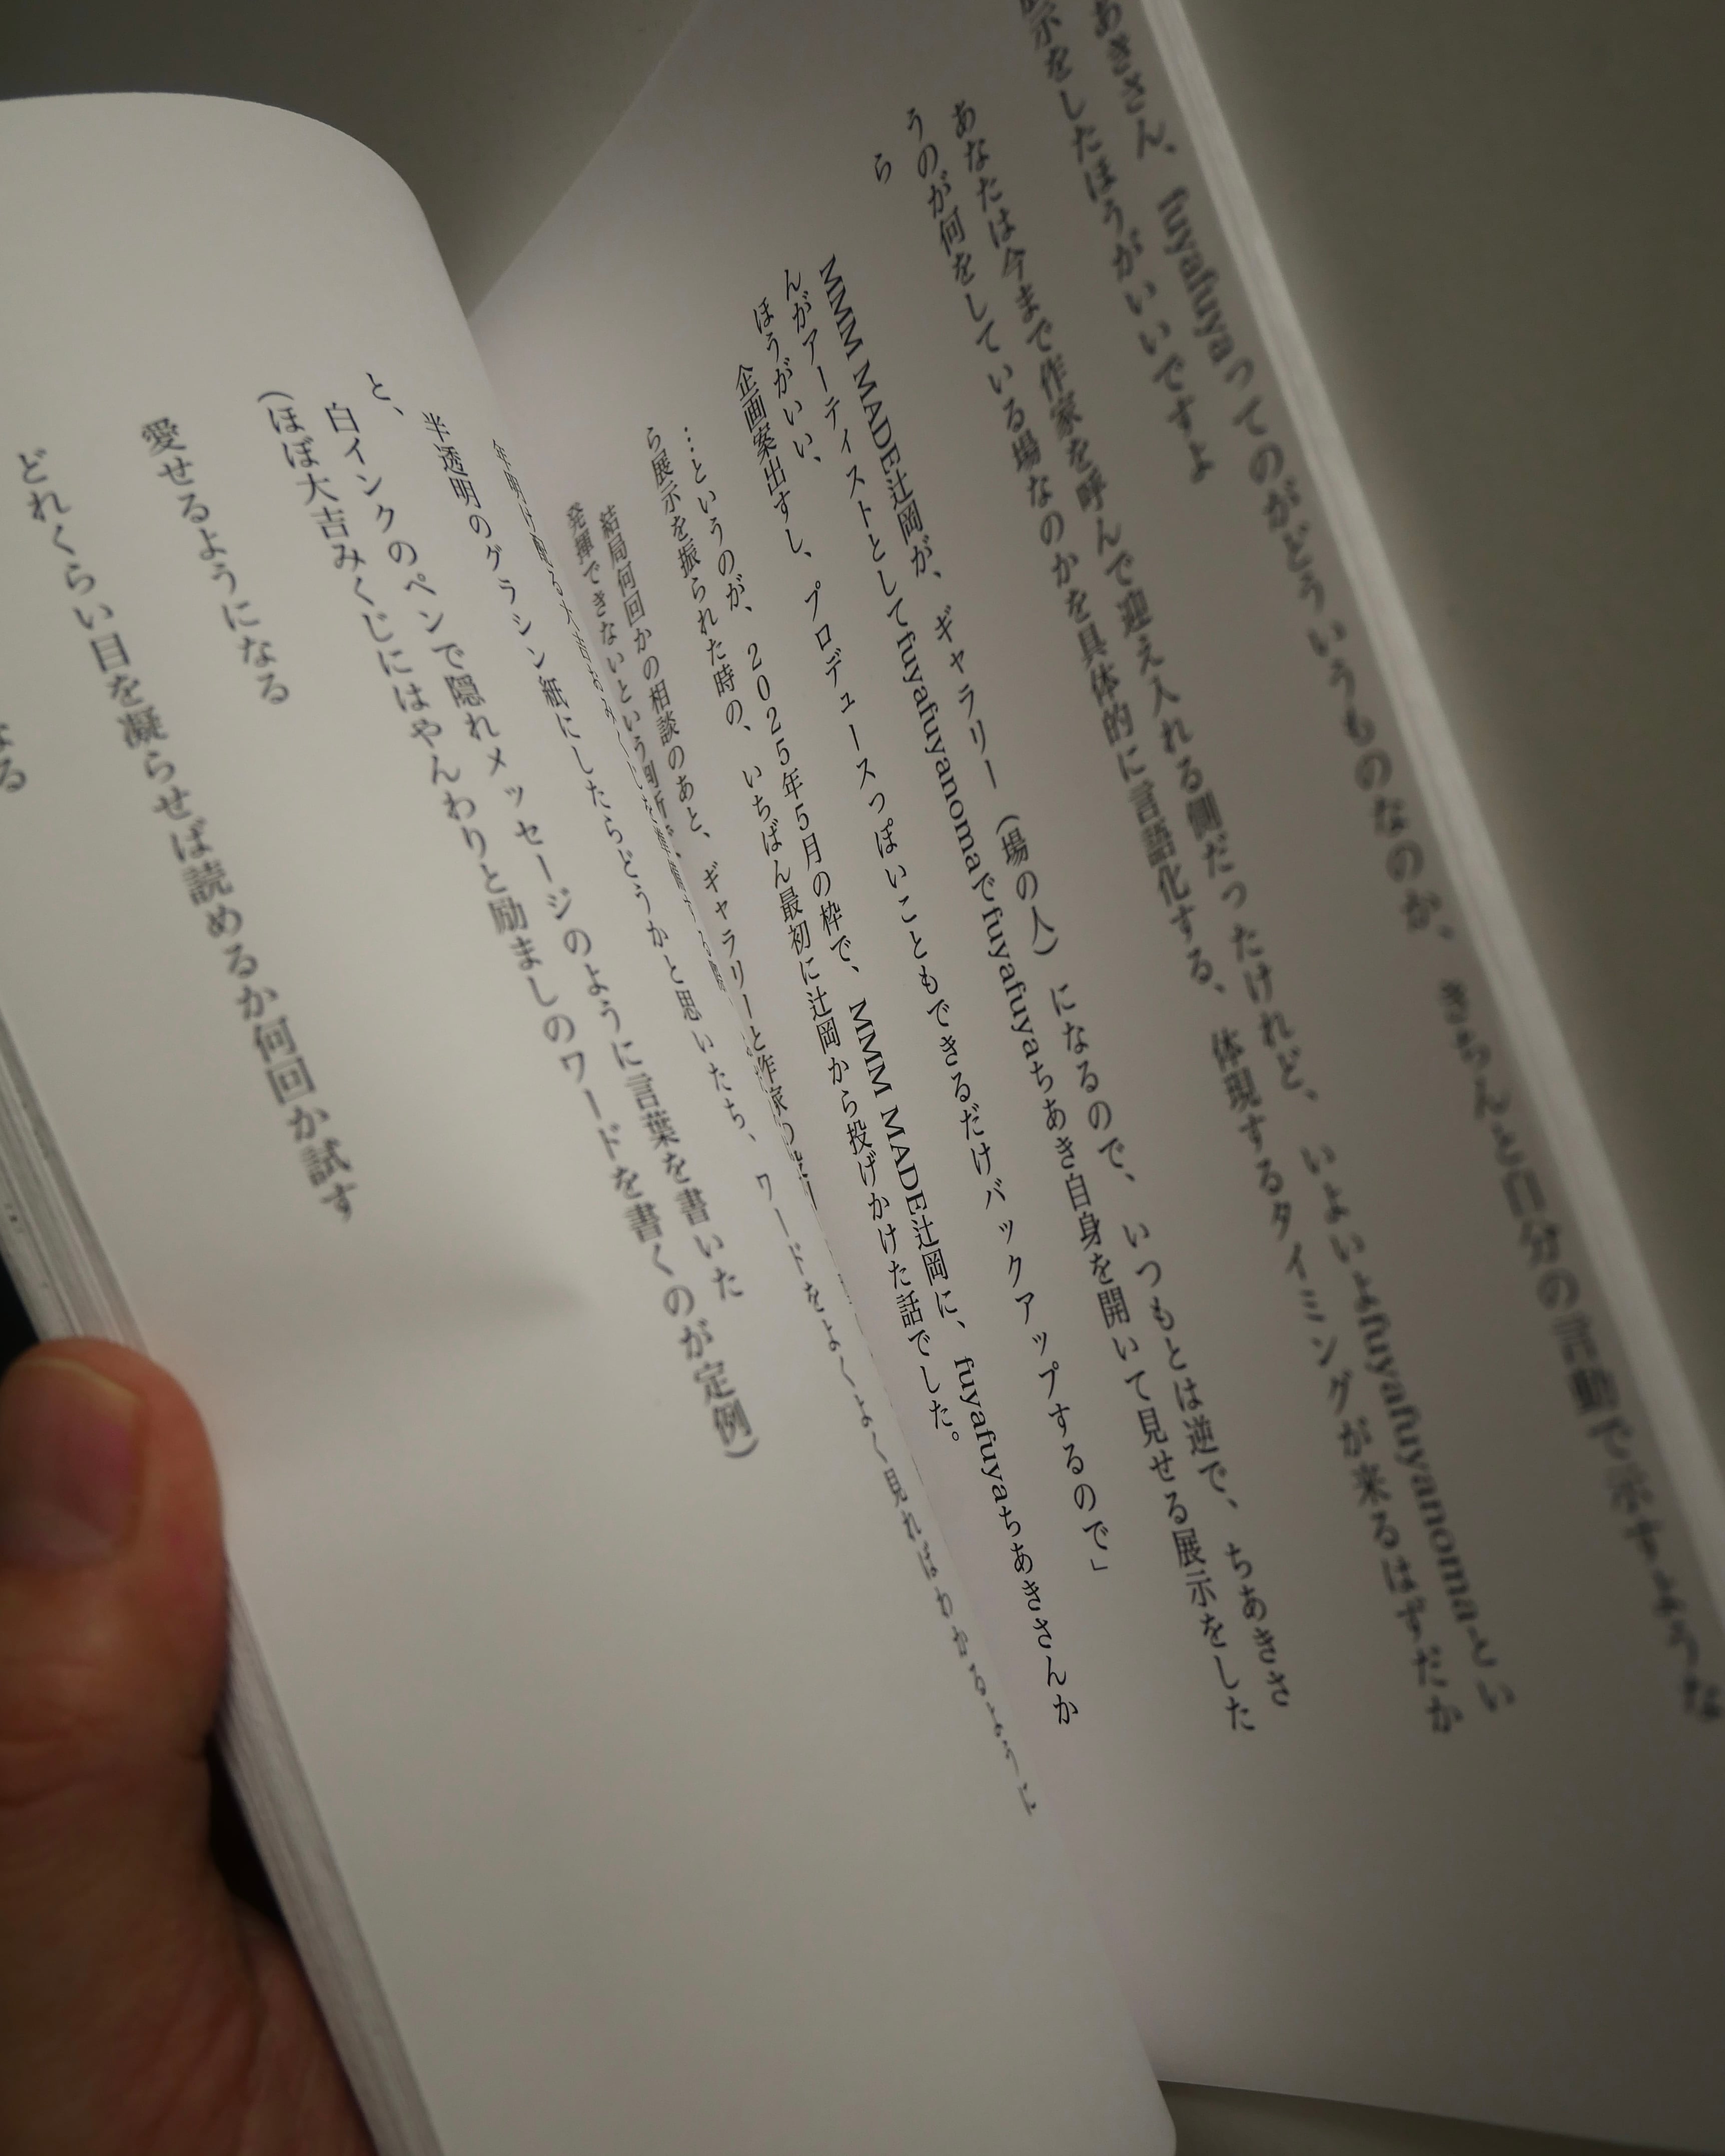 あきさん、fuyafuyaってのがどういうものなのか、きちんと自分の言動で示すような
示をしたほうがいいですよ
あなたは今まで作家を呼んで迎え入れる側だったけれど、いよいよfuyafuyanomaとい
うのが何をしている場なのかを具体的に言語化する、体現するタイミングが来るはずだか
ら
MMM MADE辻岡が、ギャラリー（場の人）になるので、いつもとは逆で、ちあきさ
んがアーティストとしてfuyafuyanomaでfuyafuyaちあき自身を開いて見せる展示をした
ほうがいい、
企画案出すし、プロデュースっぽいこともできるだけバックアップするので」
…というのが、2025年5月の枠で、MMM MADE辻岡に、fuyafuyaちあきさんか
ら展示を振られた時の、いちばん最初に辻岡から投げかけた話でした。
結局何回かの相談のあと、ギャラリーと作家の
発揮できないという判断で、
年明け配る大吉みくじを準備する際
半透明のグラシン紙にしたらどうかと思いたち、ワードをよくよく見ればわかるように
と、
白インクのペンで隠れメッセージのように言葉を書いた
（ほぼ大吉みくじにはやんわりと励ましのワードを書くのが定例）
愛せるようになる
どれくらい目を凝らせば読めるか何回か試す
なる